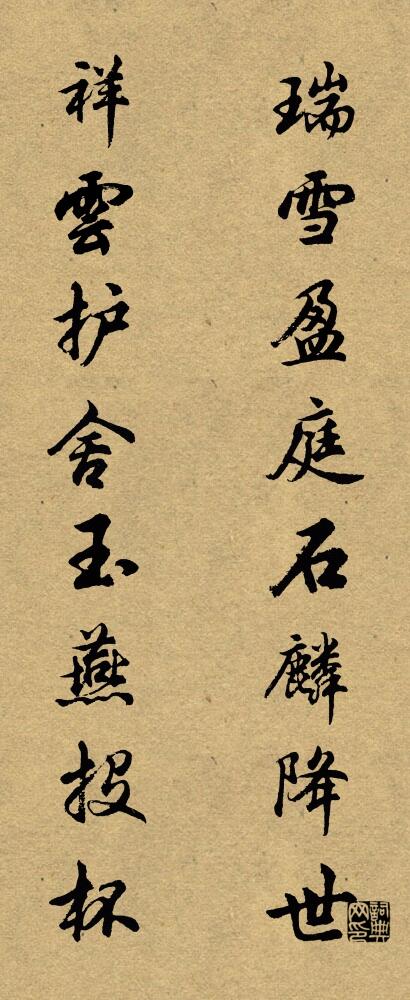 瑞雪盈庭石麟降世
祥雲护舍玉燕投杯
詞典网印